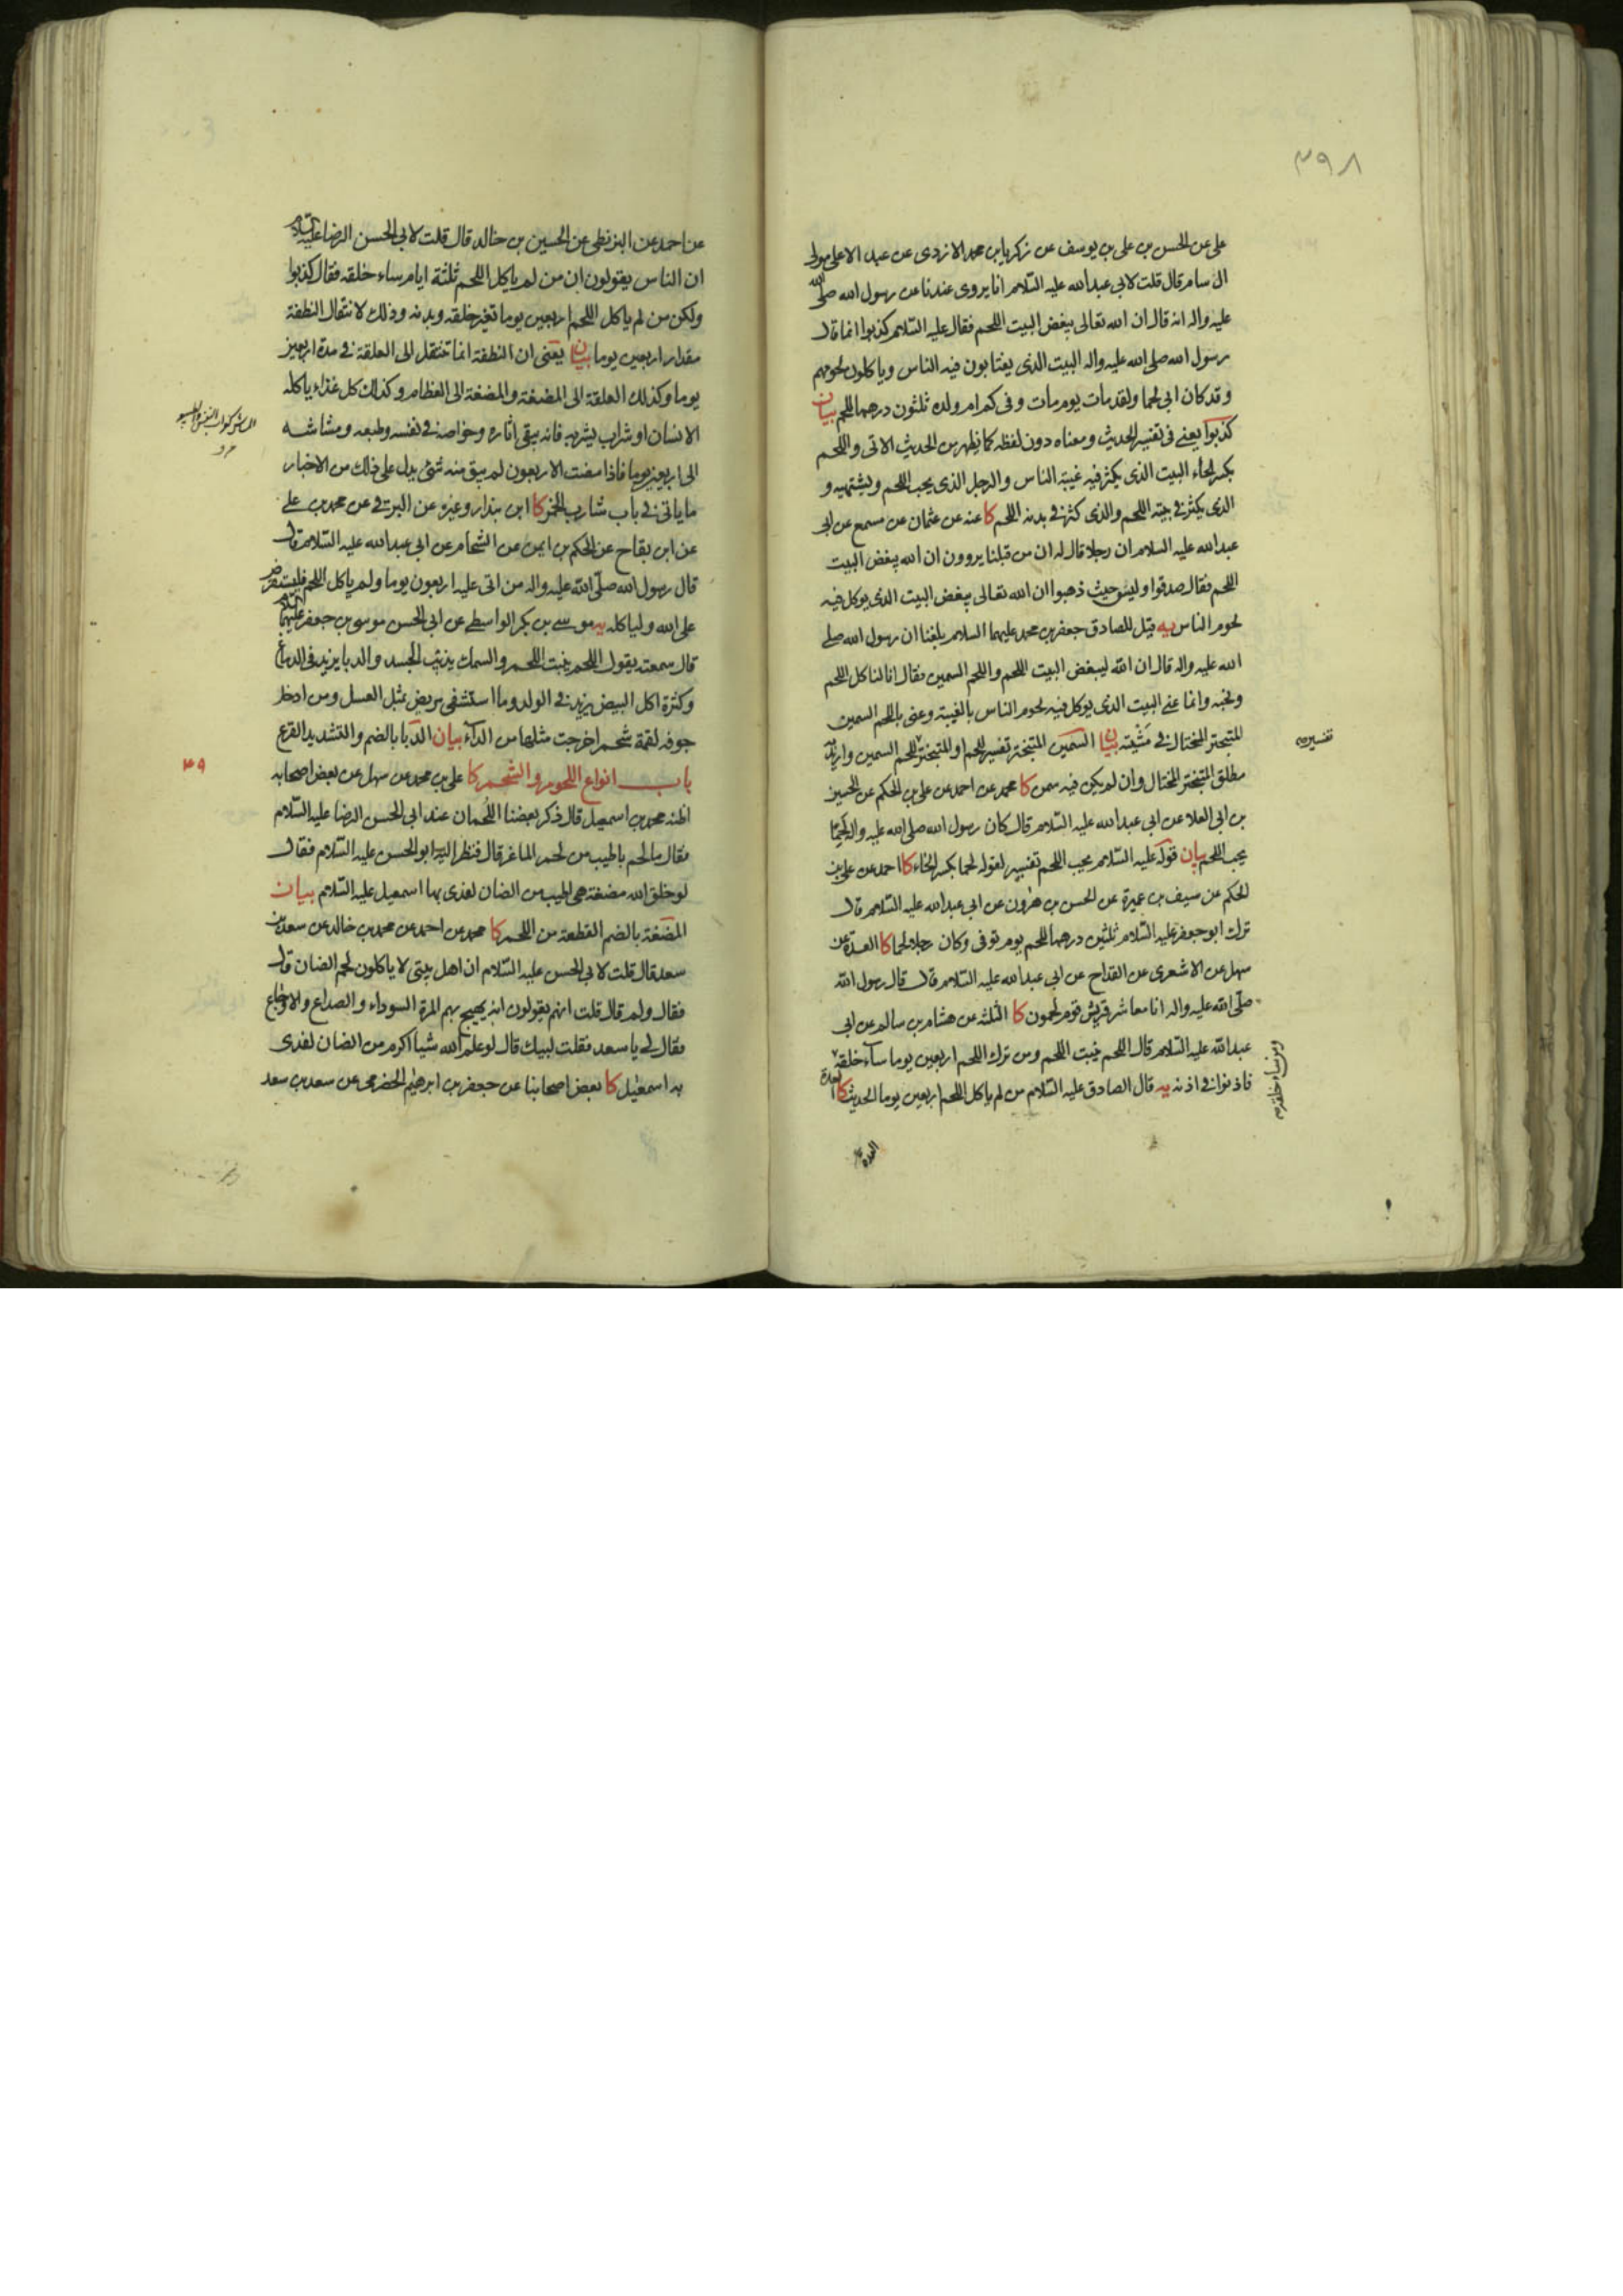 ٣٩٨
على عن الحسن بن على بن يوسف عن زكريا بن محمد الازدى عن عبد الاعلى مولى
ال سام قال قلت لابى عبد الله عليه السّلام انا يروى عندنا عن رسول الله صلى الله
عليه واله انه قال ان الله تعالى يبغض البيت اللحم فقال عليه السّلام كذبوا انما قال
رسول الله صلى الله عليه واله البيت الذى يغتابون فيه الناس وياكلون لحومهم
وقد كان ابى لحما ولقد مات يوم مات وفى كم ام ولده ثلثون درهما للحم بيان
كذبوا يعنى فى تفسير الحديث ومعناه دون لفظه كما يظهر من الحديث الاتى واللحم
بكسر الحاء البيت الذى يكثر فيه غيبة الناس والرجل الذى يحب اللحم ويشتهيه و
الذى يكثر فى بيته اللحم والذى كثر فى بدنه اللحم كا عنه عن عثمان عن مسمع عن ابى
عبد الله عليه السلام ان رجلا قال له ان من قبلنا يروون ان الله يبغض البيت
اللحم فقال صدقوا وليس حيث ذهبوا ان الله تعالى يبغض البيت الذى يوكل فيه
لحوم الناس يه قيل للصادق جعفر بن محمد عليهما السلام بلغنا ان رسول الله صلى
الله عليه واله قال ان الله ليبغض البيت اللحم واللحم السمين فقال انا لناكل اللحم
ونحبه وانما عنى البيت الذى يوكل فيه لحوم الناس بالغيبة وعنى باللحم السمين
المتبختر المختال فى مشيته بيان السمين المتبختر تفسير للحم او المتبختر للحم السمين واريد به
تفسير
مطلق المتبختر المختال وان لم يكن فيه سمن كا محمد عن احمد عن على بن الحكم عن الحسين
بن ابى العلا عن ابى عبد الله عليه السلام قال كان رسول الله صلى الله عليه واله لحما
يحب اللحم بيان قوله عليه السّلام يحب اللحم تفسير لقوله لحما بكسر الحاء كا احمد عن على بن
الحكم عن سيف بن عميرة عن الحسن بن هرون عن ابى عبد الله عليه السّلام قال
ترك ابو جعفر عليه السّلام ثلثين درهما للحم يوم توفى وكان رجلا لحما كا العدة عن
سهل عن الاشعرى عن القداح عن ابى عبد الله عليه السلام قال قال رسول الله
صلّى الله عليه واله انا معاشر قريش قوم لحمون كا الثلثه عن هشام بن سالم عن ابى
عبد الله عليه السّلام قال اللحم ينبت اللحم ومن ترك اللحم اربعين يوما ساء خلقه
ومن ساء خلقه
فاذنوا فى اذنه يه قال الصادق عليه السّلام من لم ياكل اللحم اربعين يوما الحديث كا العدة
العدة
عن احمد عن البزنطى عن الحسين بن خالد قال قلت لابى الحسن الرضا عليه السلام
ان الناس يقولون ان من لم ياكل اللحم ثلثة ايام ساء خلقه فقال كذبوا
ولكن من لم ياكل اللحم اربعين يوما تغير خلقه وبدنه وذلك لانتقال النطفة
مقدار اربعين يوما بيان يعنى ان النطفة انما تنتقل الى العلقة فى مدة اربعين
يوما وكذلك العلقة الى المضغة والمضغة الى العظام وكذلك كل غذاء ياكله
الانسان او شراب يشربه فانه يبقى اثاره وخواصه فى نفسه وطبعه ومشاشه
الى اربعين يوما فاذا مضت الاربعون لم يبق منه شئ يدل على ذلك من الاخبار
ما ياتى فى باب شارب الخمر كا ابن بندار وغيره عن البرقى عن محمد بن على
عن ابن بقاح عن الحكم بن ايمن عن الشحام عن ابى عبد الله عليه السّلام قال
قال رسول الله صلّى الله عليه واله من اتى عليه اربعون يوما ولم ياكل اللحم فليستقرض
على الله ولياكله يه موسى بن بكر الواسطى عن ابى الحسن موسى بن جعفر عليهما السلام
قال سمعته يقول اللحم ينبت اللحم والسمك يذيب الجسد والدبا يزيد فى الدماغ
وكثرة اكل البيض يزيد فى الولد وما استشفى مريض بمثل العسل ومن ادخل
جوفه لقمة شحم اخرجت مثلها من الداء بيان الدبا بالضم والتشديد القرع
٣٩
باب انواع اللحوم والشحم كا على بن محمد عن سهل عن بعض اصحابه
اظنه محمد بن اسمعيل قال ذكر بعضنا اللحمان عند ابى الحسن الرضا عليه السّلام
فقال ما لحم باطيب من لحم الماعز قال فنظر اليه ابو الحسن عليه السّلام فقال
لو خلق الله مضغة هى اطيب من الضان لفدى بها اسمعيل عليه السّلام بيان
المضغة بالضم القطعة من اللحم كا محمد عن احمد عن محمد بن خالد عن سعد بن
سعد قال قلت لابى الحسن عليه السّلام ان اهل بيتى لا ياكلون لحم الضان قال
فقال ولم قال قلت انهم يقولون انه يهيج بهم المرة السوداء والصداع والاوجاع
فقال لى يا سعد فقلت لبيك قال لو علم الله شيا اكرم من الضان لفدى
به اسمعيل كا بعض اصحابنا عن جعفر بن ابرهيم الحضرمى عن سعد بن سعد